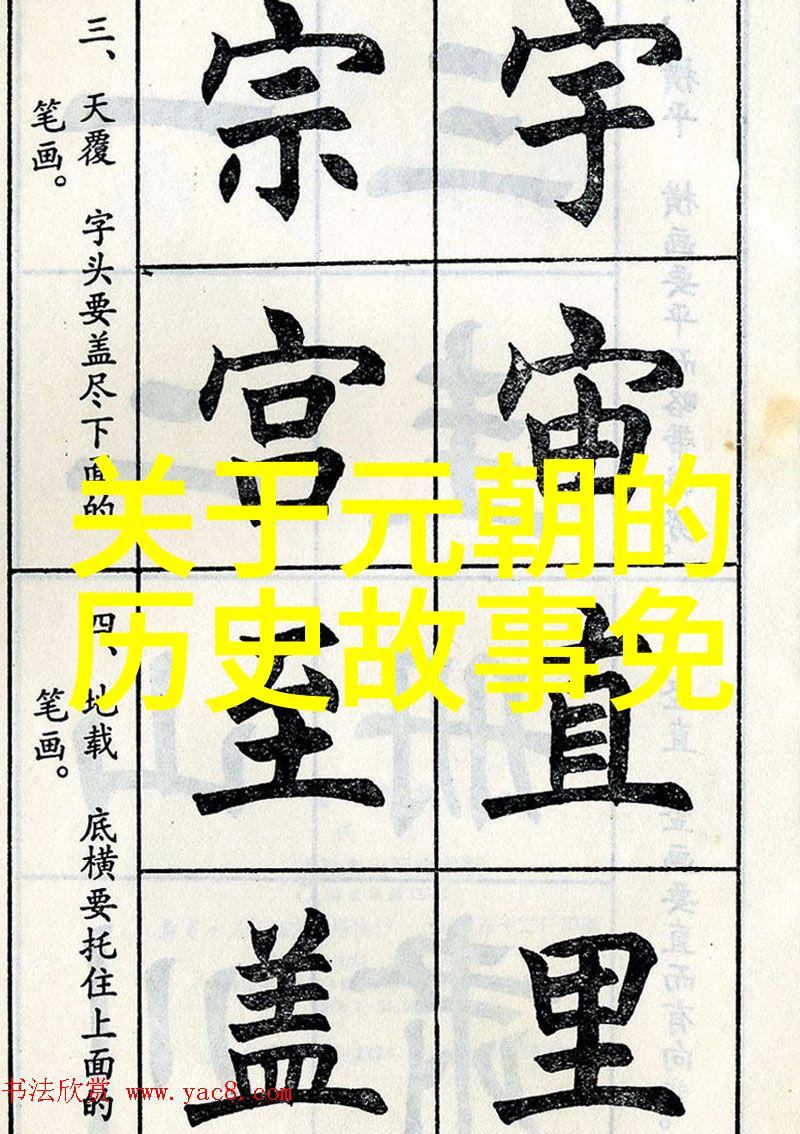 关于元朝的
历史故事免
三、天覆 字头要盖尽下面的
笔画。
宇
宗
宙
宫
四、地载 底横要托住上面的
笔画。
直
至
里
盖
书法欣赏 www.yac8.com